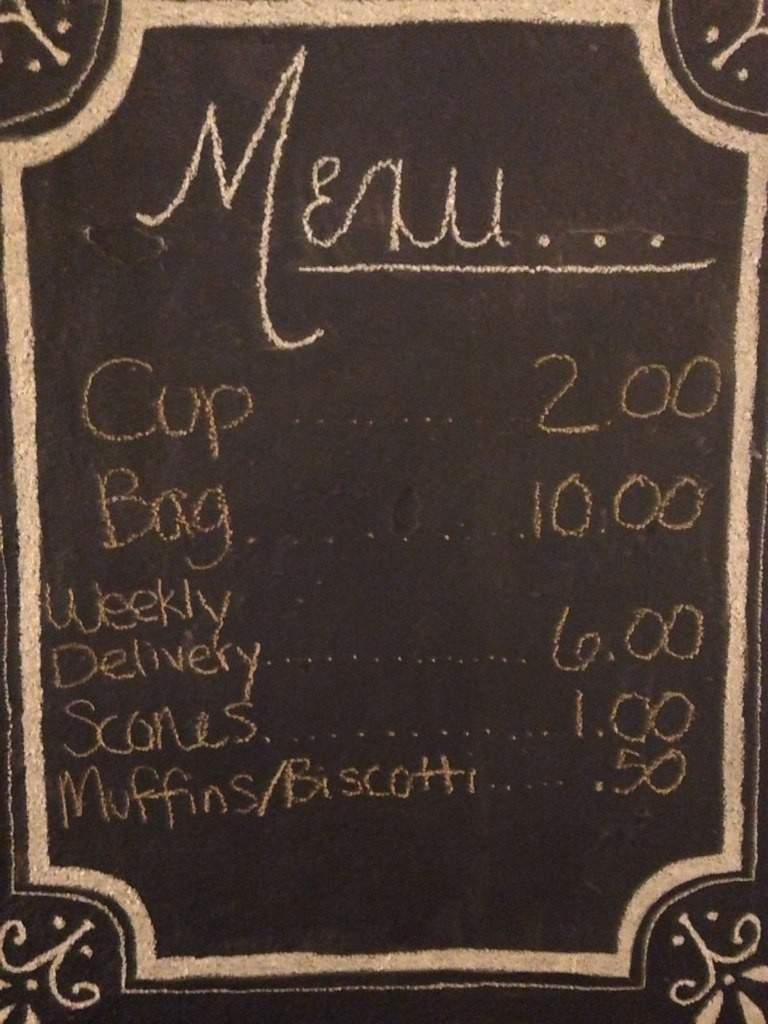 Menu...
Cup ........ 2.00
Bag .......... 10.00
Weekly
Delivery .............. 6.00
Scones ............... 1.00
Muffins/Biscotti ..... .50